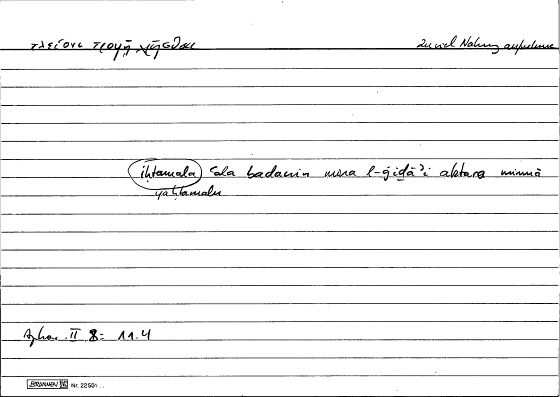 πλείονι τροφῇ χρῆσθαι Zu viel Nahrung aufnehmen
iḥtamala ʿala badanin mina l-ġiḏāʾi akṯara mimmā
yaḥtamalu
Aphor. II 8 = 11.4
BRUNNEN Nr. 22501